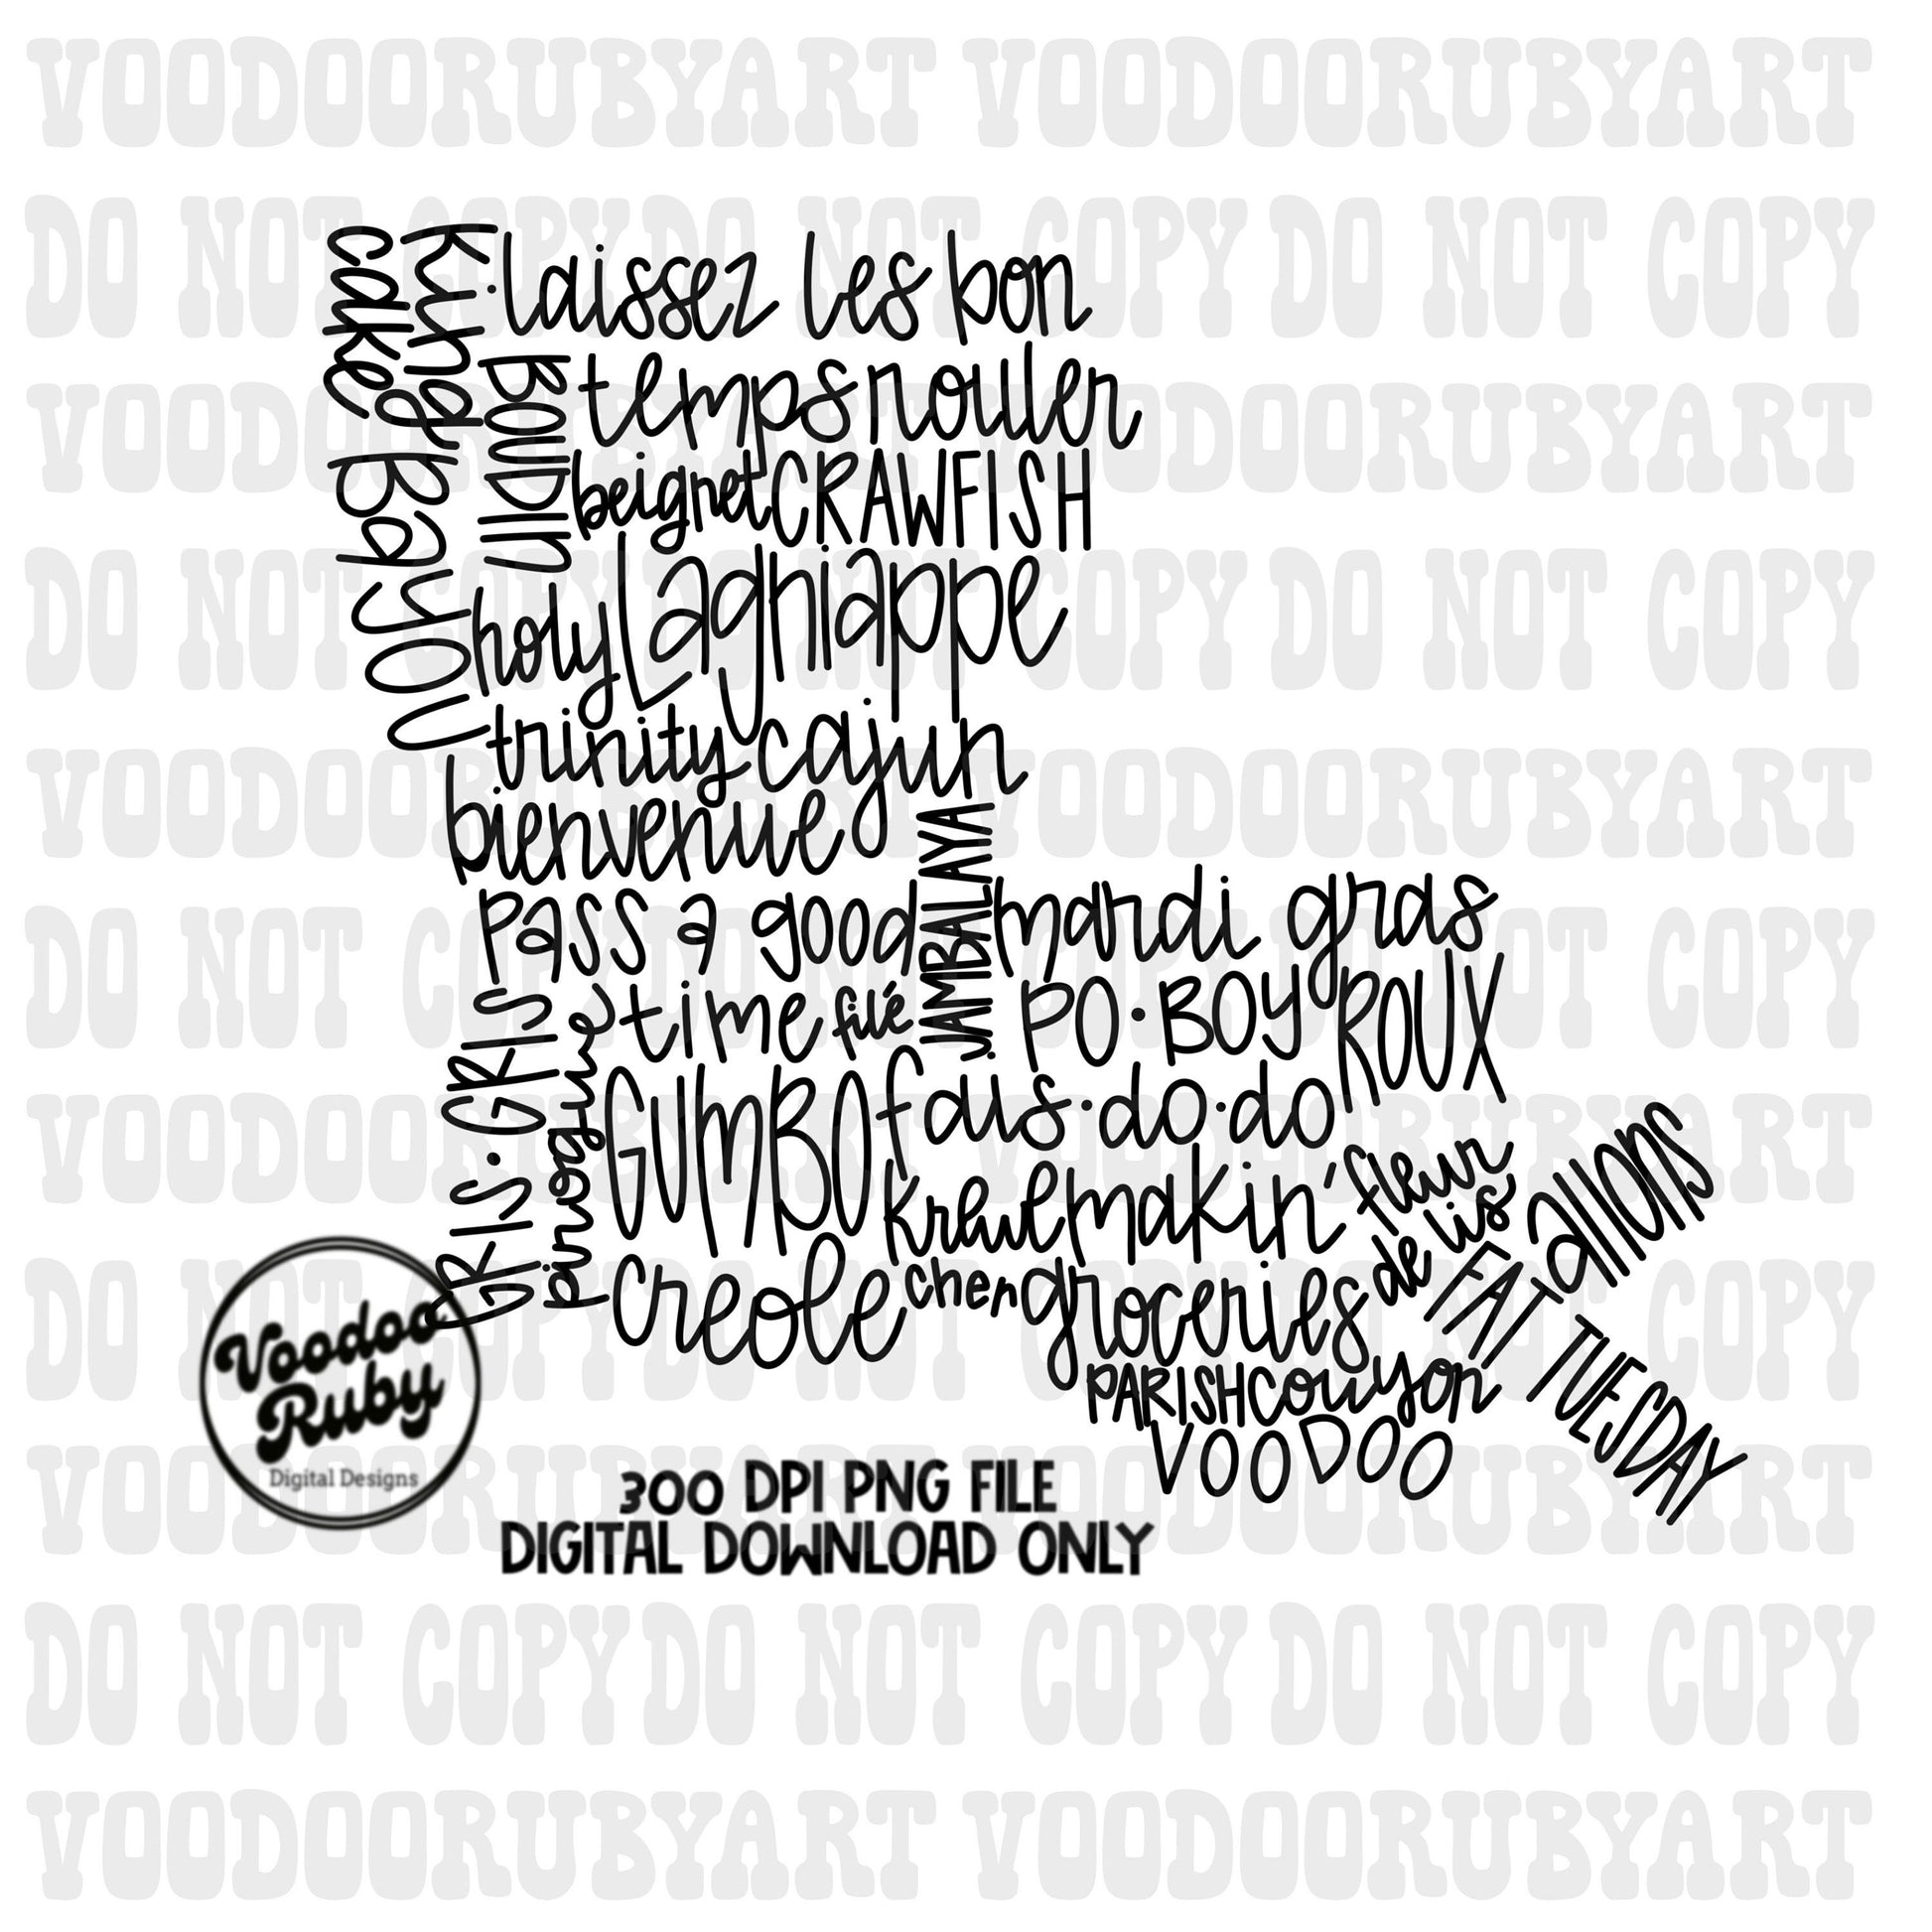 VOODOORUBYART VOODOORUBYART
DO NOT COPY DO NOT COPY DO NOT COPY
VOODOORUBYART VOODOORUBYART
DO NOT COPY DO NOT COPY DO NOT COPY
VOODOORUBYART VOODOORUBYART
DO NOT COPY DO NOT COPY DO NOT COPY
VOODOORUBYART VOODOORUBYART
DO NOT COPY DO NOT COPY DO NOT COPY
VOODOORUBYART VOODOORUBYART
DO NOT COPY DO NOT COPY DO NOT COPY
VOODOORUBYART VOODOORUBYART
King
cake
laissez les bon
temps rouler
BOUDIN
beignet CRAWFISH
BAYOU
holy Lagniappe
trinity cajun
bienvenue
JAMBALAYA
pass a good mardi gras
time filé PO·BOY ROUX
GRIS·GRIS
pirogue
GUMBO fais·do·do
krewe makin' fleur
de lis
allons
creole cher groceries
FAT TUESDAY
PARISH couyon
VOODOO
Voodoo
Ruby
Digital Designs
300 DPI PNG FILE
DIGITAL DOWNLOAD ONLY